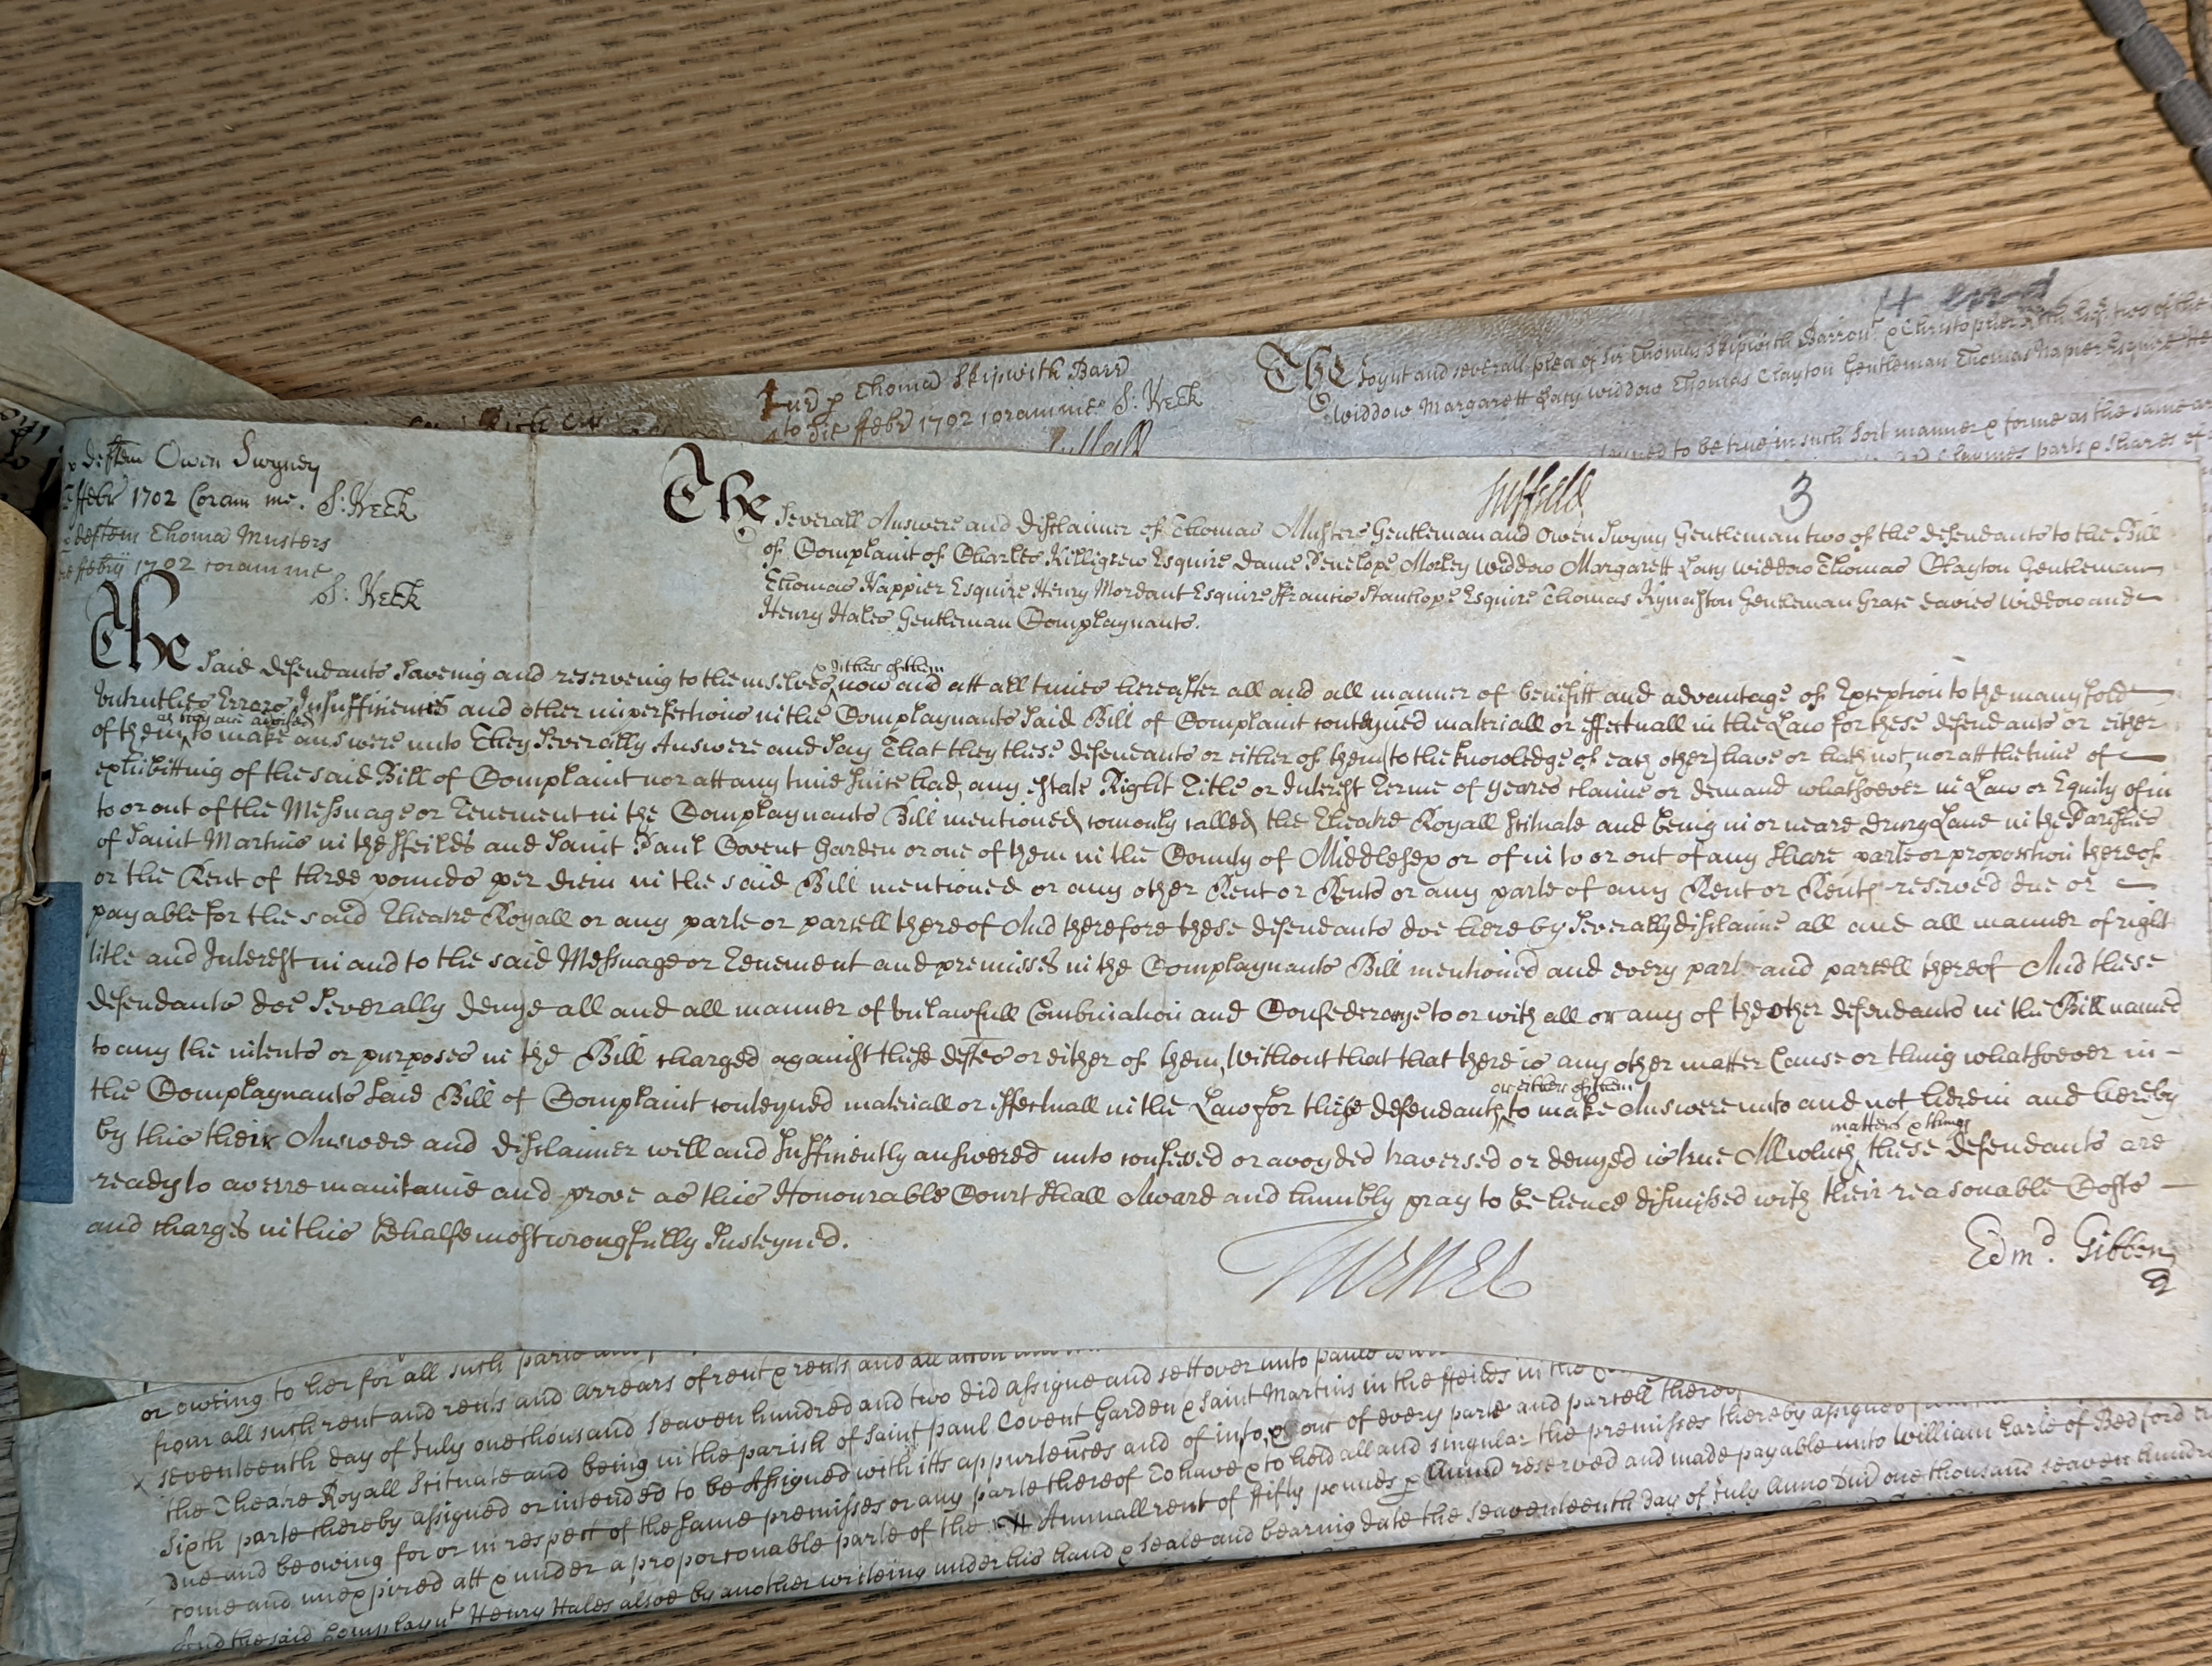 4
Jur p Thoma Skipwith Barr
to die ffebr 1702 coram me S: Keck
The Joynt and severall plea of Sir Thomas Skipwith Barront & Christopher Rich Esqr two of the
Widdow Margarett Lacy widdow Thomas Clayton Gentleman Thomas Napier Esquire He
to be true in such sort manner & forme as the same are
parts & shares of
deften Owen Swyney
ffebr 1702 Coram me. S: Keck
deftem Thoma Musters
febrij 1702 coram me
S: Keck
Suffeild
3
The Severall Answere and Disclaimer of Thomas Musters Gentleman and Owen Swyny Gentleman two of the defendants to the Bill
of Complaint of Charles Killigrew Esquire Dame Penelope Morley Widdow Margarett Lacy widdow Thomas Clayton Gentleman
Thomas Nappier Esquire Henry Mordant Esquire ffrancis Stanhope Esquire Thomas Kynaston Gentleman Grace Davies Widdow and
Henry Hales Gentleman Complaynants.
The Said defendants Saveing and reserveing to themselves & either of them now and att all times hereafter all and all manner of benefitt and advantage of Exception to the manyfold
untruthes Errors Insufficiencies and other imperfections in the Complaynants Said Bill of Complaint conteyned materiall or effectuall in the Law for these defendants or either
of them as they are advised to make answere unto They Severally Answere and Say That they these defendants or either of them (to the knowledge of each other) have or hath not, nor att the time of
exhibitting of the said Bill of Complaint nor att any time since had, any estate Right Title or Interest Terme of yeares claime or demand whatsoever in Law or Equity of in
to or out of the Messuage or Tenement in the Complaynants Bill mentioned comonly called the Theatre Royall Scituate and being in or neare Drury Lane in the Parishes
of Saint Martins in the ffeilds and Saint Paul Covent Garden or one of them in the County of Middlesex or of in to or out of any Share parte or proportion thereof
or the Rent of three pounds per diem in the said Bill mentioned or any other Rent or Rents or any parte of any Rent or Rents reserved due or
payable for the said Theatre Royall or any parte or parcell thereof And therefore these defendants doe hereby Severally disclaime all and all manner of right
title and Interest in and to the said Messuage or Tenement and premisses in the Complaynants Bill mentioned and every part and parcell thereof And these
defendants doe Severally denye all and all manner of unlawfull Combination and Confederacye to or with all or any of the other defendants in the Bill named
to any the intents or purposes in the Bill charged against these defts or either of them, Without that that there is any other matter Cause or thing whatsoever in
the Complaynants Said Bill of Complaint conteyned materiall or effectuall in the Law for these defendants or either of them to make Answere unto and not herein and hereby
by this their Answere and Disclaimer well and Sufficiently answered unto confessed or avoyded traversed or denyed is true All which matters & things these defendants are
ready to averre maintaine and prove as this Honourable Court Shall Award and humbly pray to be hence dismissed with their reasonable Costs
and charges in this behalfe most wrongfully Susteyned.
Turner
Edmd. Gibbon
or oweing to her for all such parte
from all such rent and rents and arrears of rent & rents and all
seventeenth day of July one thousand seaven hundred and two did assigne and sett over unto
the Theatre Royall Scituate and being in the parish of Saint Paul Covent Garden & Saint Martins in the ffeilds in the
Sixth parte thereby assigned or intended to be Assigned with itts appurtences and of into & out of every parte and parcell thereof
due and be oweing for or in respect of the same premisses or any parte thereof To have & to hold all and singular the premisses thereby assigned
come and unexpired att & under a proporconable parte of the Annuall rent of ffifty pounds p Annum reserved and made payable unto William Earle of Bedford
And the said Complaynt Henry Hales alsoe by another writeing under his hand & Seale and beareing date the Seaventeenth day of July Anno Dni one thousand seaven hundr